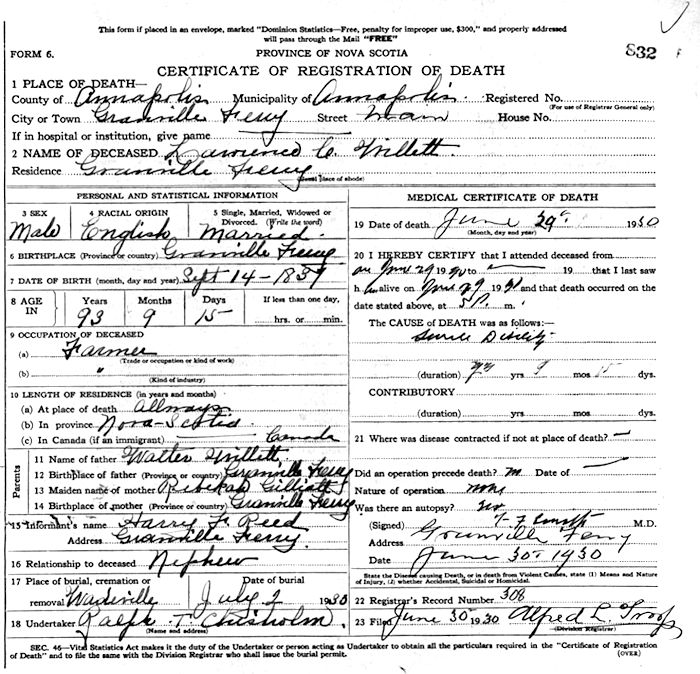 This form if placed in an envelope, marked "Dominion Statistics—Free, penalty for improper use, $300," and properly addressed
will pass through the Mail "FREE"
FORM 6.
PROVINCE OF NOVA SCOTIA
832
CERTIFICATE OF REGISTRATION OF DEATH
1 PLACE OF DEATH—
County of Annapolis Municipality of Annapolis Registered No.
(For use of Registrar General only)
City or Town Granville Ferry Street Main House No.
If in hospital or institution, give name
2 NAME OF DECEASED Lawrence C. Willett.
Residence Granville Ferry
(Usual place of abode)
PERSONAL AND STATISTICAL INFORMATION
3 SEX 4 RACIAL ORIGIN 5 Single, Married, Widowed or
Divorced. (Write the word)
Male English Married.
6 BIRTHPLACE (Province or country) Granville Ferry
7 DATE OF BIRTH (month, day and year) Sept 14 - 18
8 AGE IN Years Months Days If less than one day,
93 9 15 hrs. or min.
9 OCCUPATION OF DECEASED
(a) Farmer
(Trade or occupation or kind of work)
(b) "
(Kind of industry)
10 LENGTH OF RESIDENCE (in years and months)
(a) At place of death Allways
(b) In province Nova-Scotia
(c) In Canada (if an immigrant) Canada
Parents
11 Name of father Walter Willett
12 Birthplace of father (Province or country) Granville Ferry
13 Maiden name of mother Rebekah Gilliatt
14 Birthplace of mother (Province or country) Granville Ferry
15 Informant's name Harry F. Reed
Address Granville Ferry.
16 Relationship to deceased Nephew
17 Place of burial, cremation or Date of burial
removal Wadeville July 2 1930
18 Undertaker Ralph T. Chisholm.
(Name and address)
MEDICAL CERTIFICATE OF DEATH
19 Date of death June 29 1930
(Month, day and year)
20 I HEREBY CERTIFY that I attended deceased from
on June 29 19 to 19 that I last saw
h alive on June 29 19 and that death occurred on the
date stated above, at 5 P. m.
The CAUSE of DEATH was as follows:—
Senile Debility
(duration) yrs 9 mos 15 dys.
CONTRIBUTORY
(duration) yrs. mos. dys.
21 Where was disease contracted if not at place of death?
Did an operation precede death? Date of
Nature of operation none
Was there an autopsy? no
(Signed) M.D.
Address Granville Ferry
Date June 30 1930
State the Disease causing Death, or in death from Violent Causes, state (1) Means and Nature
of Injury, (2) whether Accidental, Suicidal or Homicidal.
22 Registrar's Record Number 308
23 Filed June 30 1930 Alfred L. Troop
(Division Registrar)
SEC. 46—Vital Statistics Act makes it the duty of the Undertaker or person acting as Undertaker to obtain all the particulars required in the "Certificate of Registration
of Death" and to file the same with the Division Registrar who shall issue the burial permit.
(OVER)